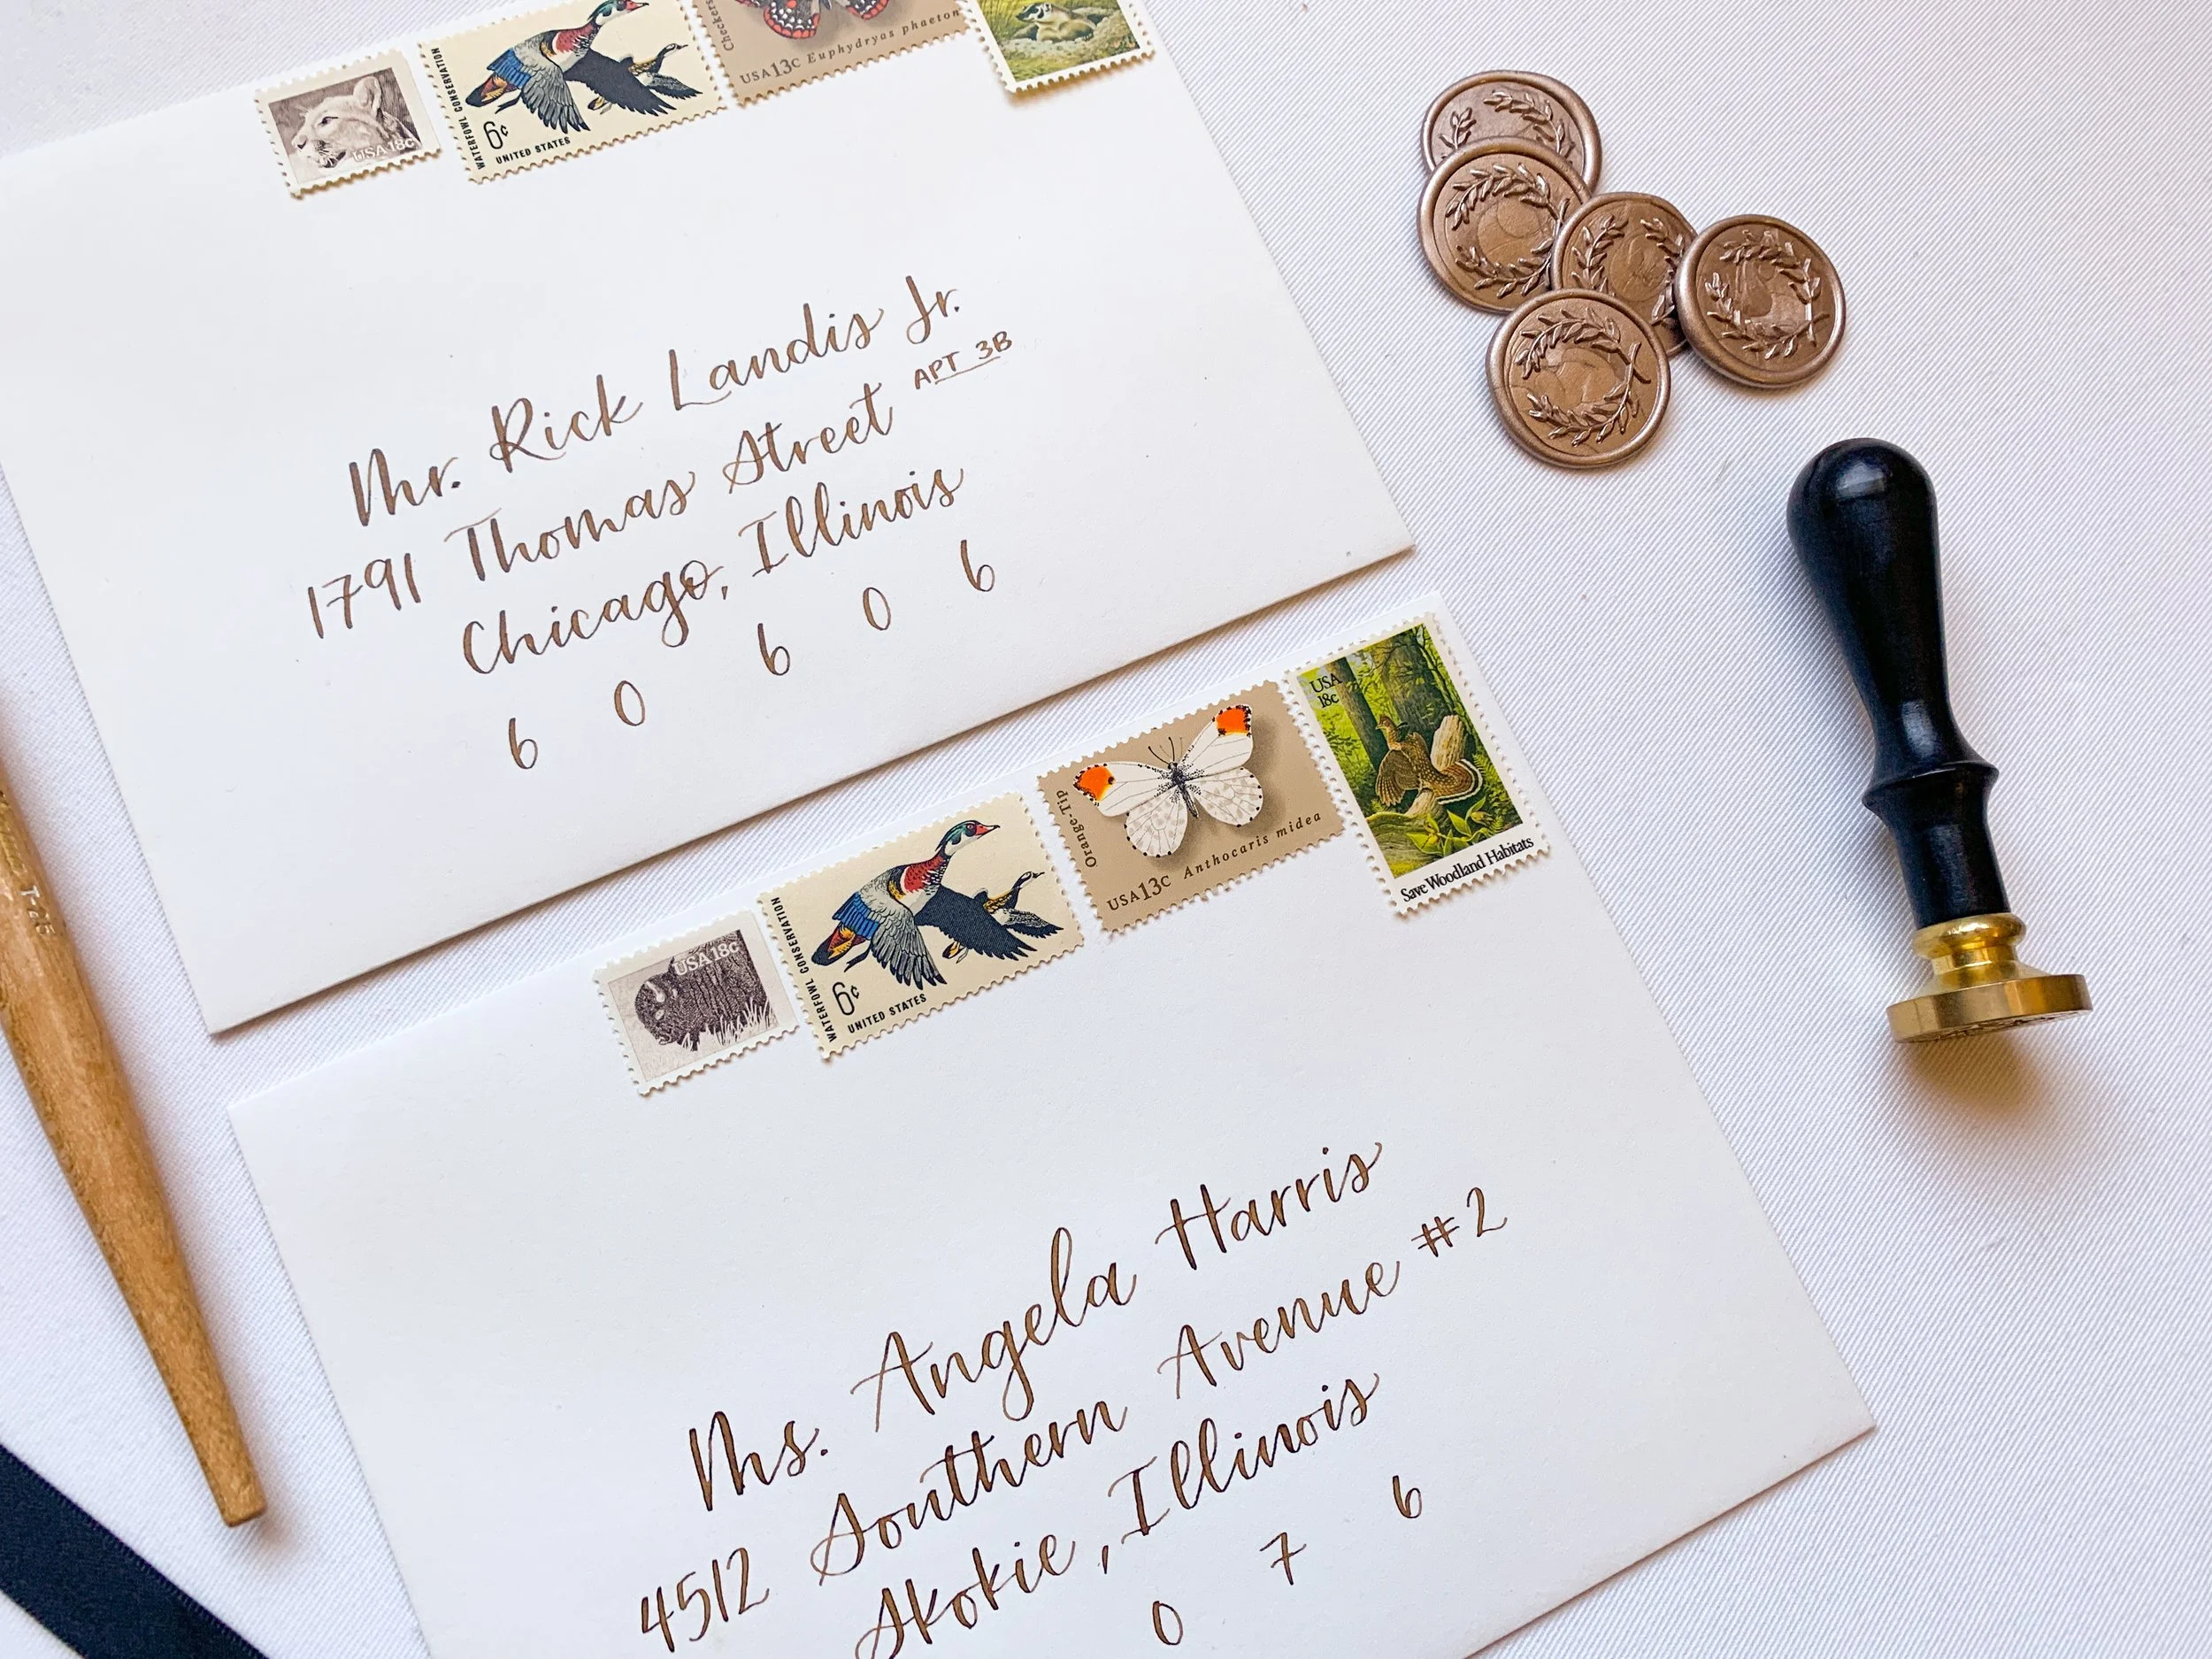 USA 18c
WATERFOWL CONSERVATION
6¢
UNITED STATES
Checkers
USA 13c Euphydryas phaeton
Mr. Rick Landis Jr.
1791 Thomas Street APT 3B
Chicago, Illinois
6 0 6 0 6
USA 18c
WATERFOWL CONSERVATION
6¢
UNITED STATES
Orange-Tip
USA 13c Anthocaris midea
USA
18c
Save Woodland Habitats
Ms. Angela Harris
4512 Southern Avenue #2
Skokie, Illinois
0 7 6